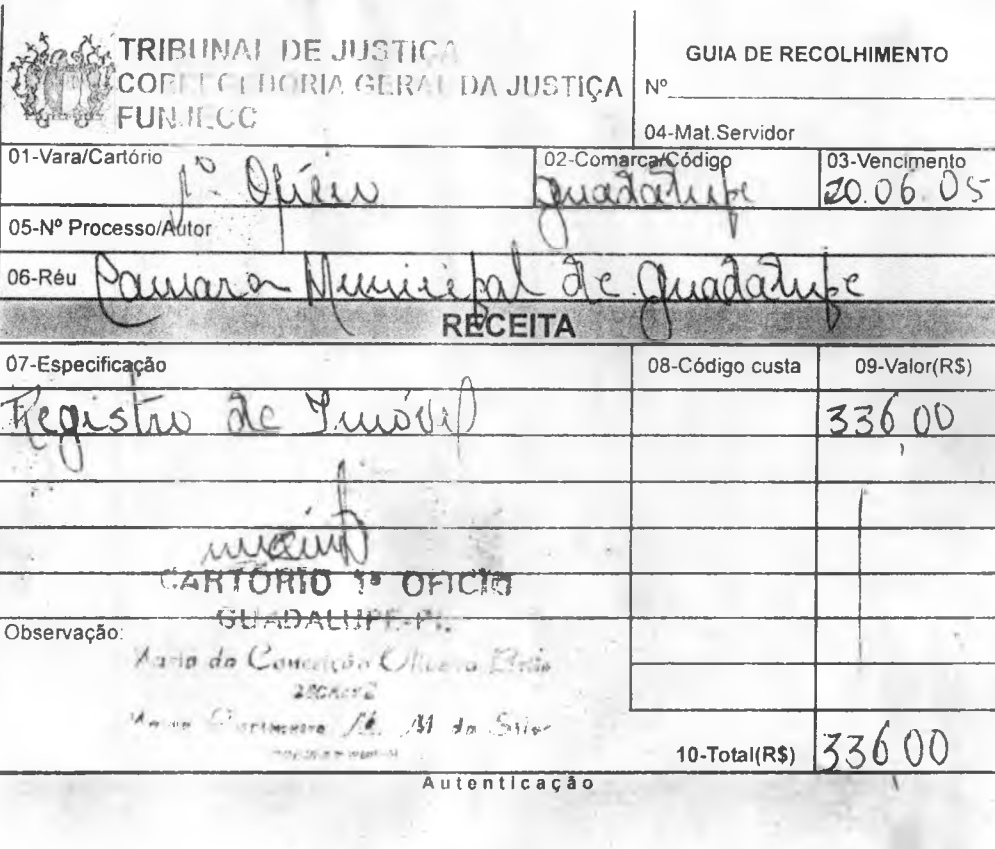 TRIBUNAL DE JUSTIÇA
CORREGEDORIA GERAL DA JUSTIÇA
FUNJECC
GUIA DE RECOLHIMENTO
Nº
04-Mat.Servidor
01-Vara/Cartório
1º Ofício
02-Comarca/Código
Guadalupe
03-Vencimento
20.06.05
05-Nº Processo/Autor
06-Réu Camara Municipal de Guadalupe
RECEITA
07-Especificação
08-Código custa
09-Valor(R$)
Registro de Imóvel
336,00
CARTÓRIO 1º OFICIO
GUADALUPE-PI.
Observação:
Maria da Conceição Oliveira
M. da Silva
10-Total(R$) 336,00
Autenticação